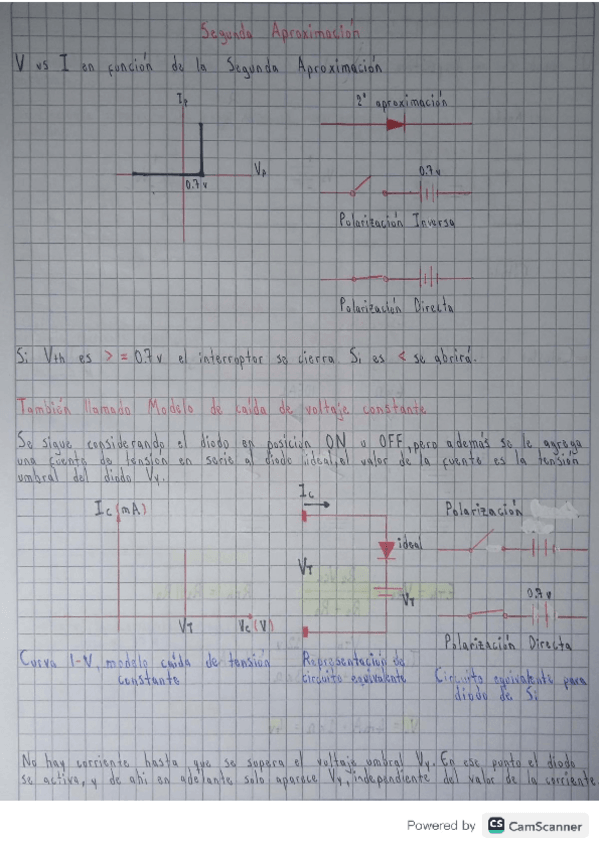 Segunda Aproximación
V vs I en función de la Segunda Aproximación
2° aproximación
0.7 v
0.7 v
Polarización Inversa
Polarización Directa
Si Vth es > = 0.7 v el interroptor se cierra Si es < se abrirá.
También llamado Modelo de caída de voltaje constante
Se sigue considerando el diodo en posición ON u OFF, pero además se le agrega
una fuente de tensión en serie al diodo ideal, el valor de la fuente es la tensión
umbral del diodo Vγ.
Ic (mA)
Ic
Polarización
ideal
VT
VT
0.7 v
VT
Vc (V)
Polarización Directa
Curva I-V, modelo caída de tensión
constante
Representación de
circuito equivalente
Circuito equivalente para
diodo de Si
No hay corriente hasta que se supera el voltaje umbral Vγ. En ese punto el diodo
se activa, y de ahi en adelante solo aparece Vγ, independiente del valor de la corriente.
Powered by CS CamScanner